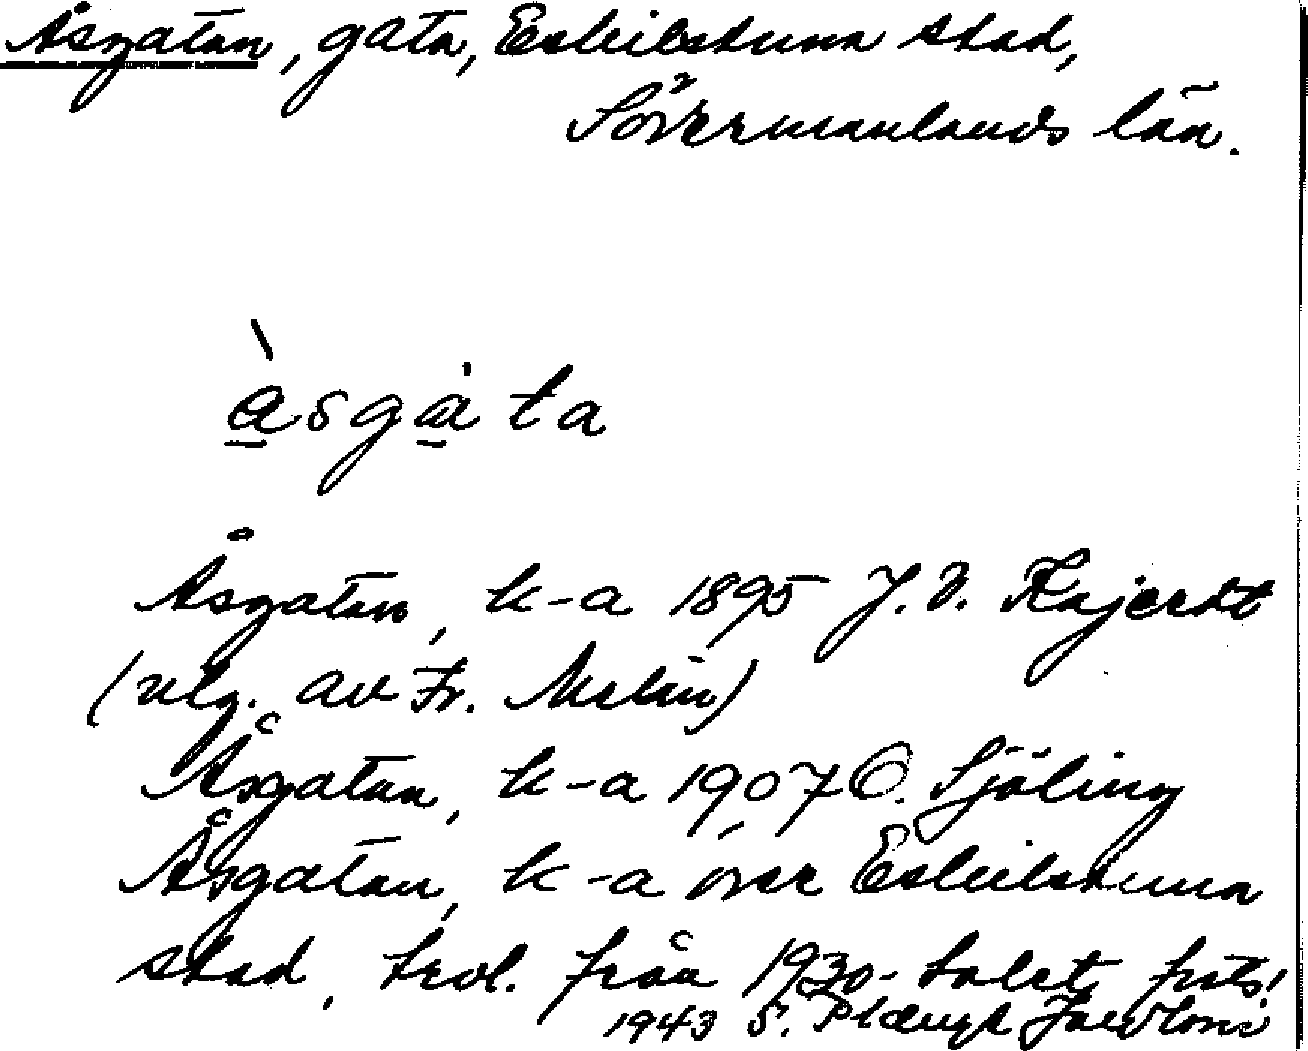 Åsgatan, gata, Eskilstuna stad,
Södermanlands län.
a̠sga̠ta
Åsgatan, k-a 1895 J. V.
(utg. av Fr. Melin)
Åsgatan, k-a 1907 O. Sjöling
Åsgatan, k-a över Eskilstuna
stad, trol. från 1930-talet
1943 S.